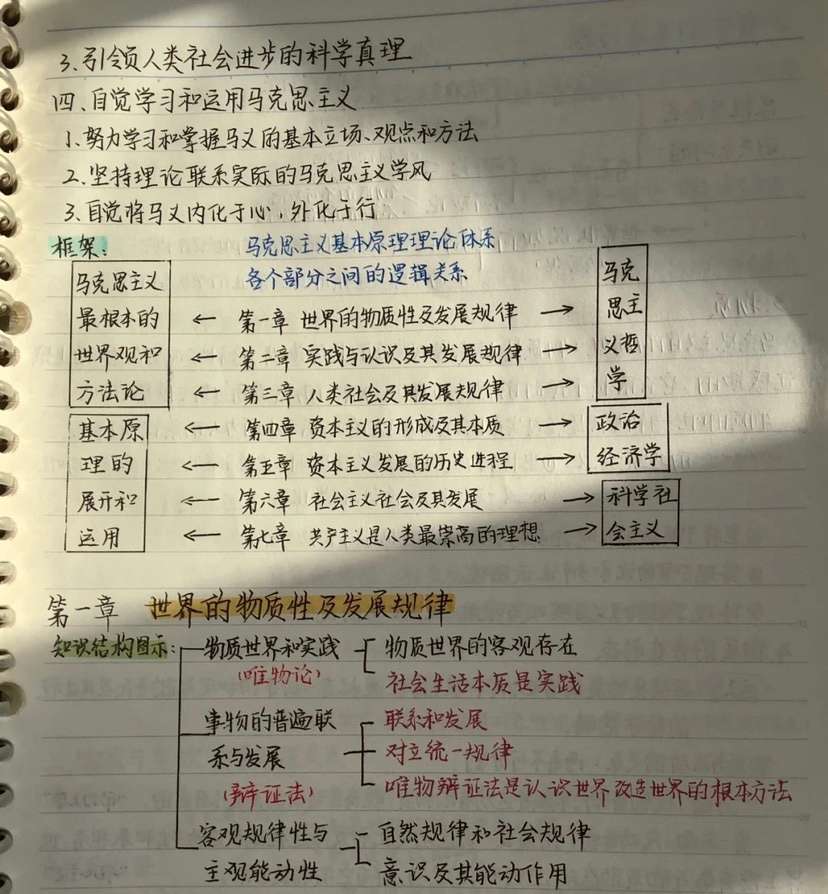 3.引领人类社会进步的科学真理
四、自觉学习和运用马克思主义
1.努力学习和掌握马义的基本立场、观点和方法
2.坚持理论联系实际的马克思主义学风
3.自觉将马义内化于心,外化于行
框架: 马克思主义基本原理理论体系
马克思主义 各个部分之间的逻辑关系 马克
最根本的 ← 第一章 世界的物质性及发展规律 → 思主
世界观和 ← 第二章 实践与认识及其发展规律 → 义哲
方法论 ← 第三章 人类社会及其发展规律 → 学
基本原 ← 第四章 资本主义的形成及其本质 → 政治
理的 ← 第五章 资本主义发展的历史进程 → 经济学
展开和 ← 第六章 社会主义社会及其发展 → 科学社
运用 ← 第七章 共产主义是人类最崇高的理想 → 会主义
第一章 世界的物质性及发展规律
知识结构图示: 物质世界和实践 物质世界的客观存在
(唯物论) 社会生活本质是实践
事物的普遍联 联系和发展
系与发展 对立统一规律
(辩证法) 唯物辩证法是认识世界改造世界的根本方法
客观规律性与 自然规律和社会规律
主观能动性 意识及其能动作用